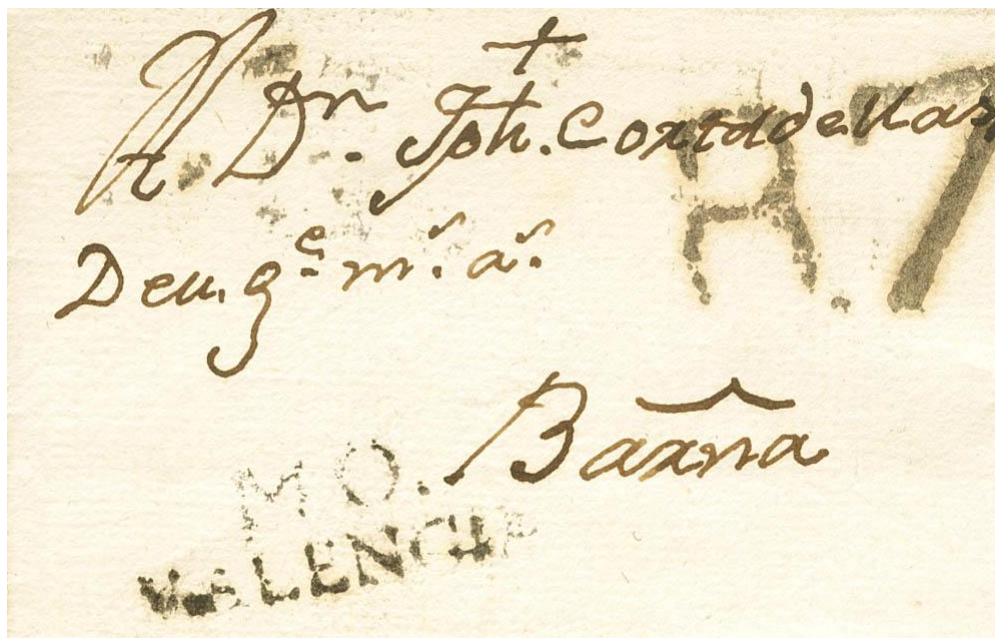 A Dn. Jph. Cortadellas
Deu. ge. ms. as.
R.7
Barna
MO.
VALENCIA